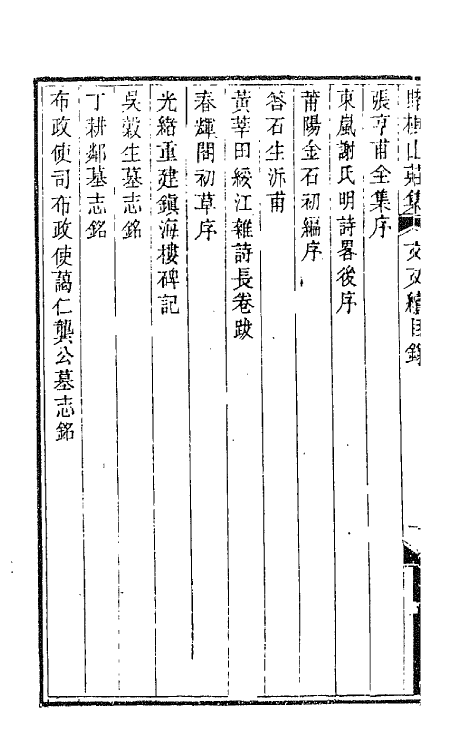 賭棋山莊集 文又續目錄 一
張亨甫全集序
東嵐謝氏明詩畧後序
莆陽金石初編序
答石生沂甫
黃莘田綏江雜詩長卷跋
春輝閣初草序
光緒重建鎮海樓碑記
吳穀生墓志銘
丁耕鄰墓志銘
布政使司布政使藹仁龔公墓志銘